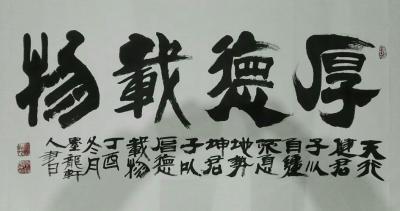 厚德載物
天行
健君
子以
自彊
不息
地势
坤君
子以
厚德
載物
丁酉
冬月
墨龍軒
人書